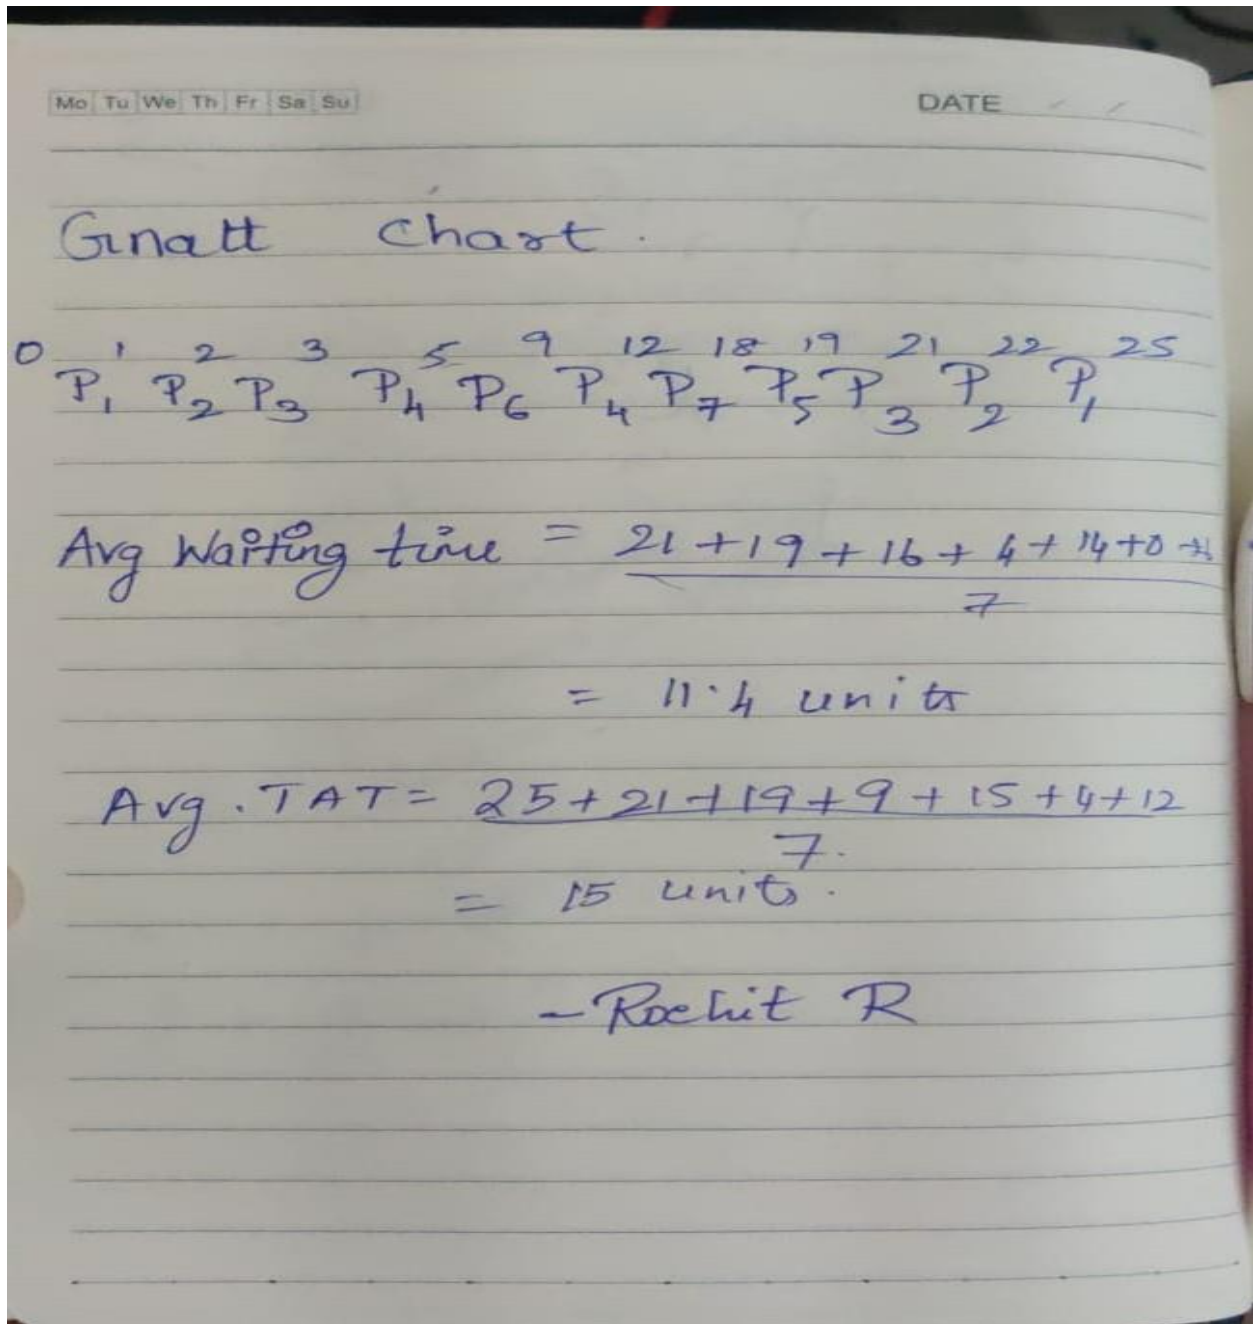 Mo Tu We Th Fr Sa Su DATE
Gnatt Chart.
0 1 2 3 5 9 12 18 19 21 22 25
P1 P2 P3 P4 P6 P4 P7 P5 P3 P2 P1
Avg Waiting time = 21+19+16+4+14+0+
7
= 11.4 units
Avg. TAT = 25+21+19+9+15+4+12
7.
= 15 units.
- Rochit R